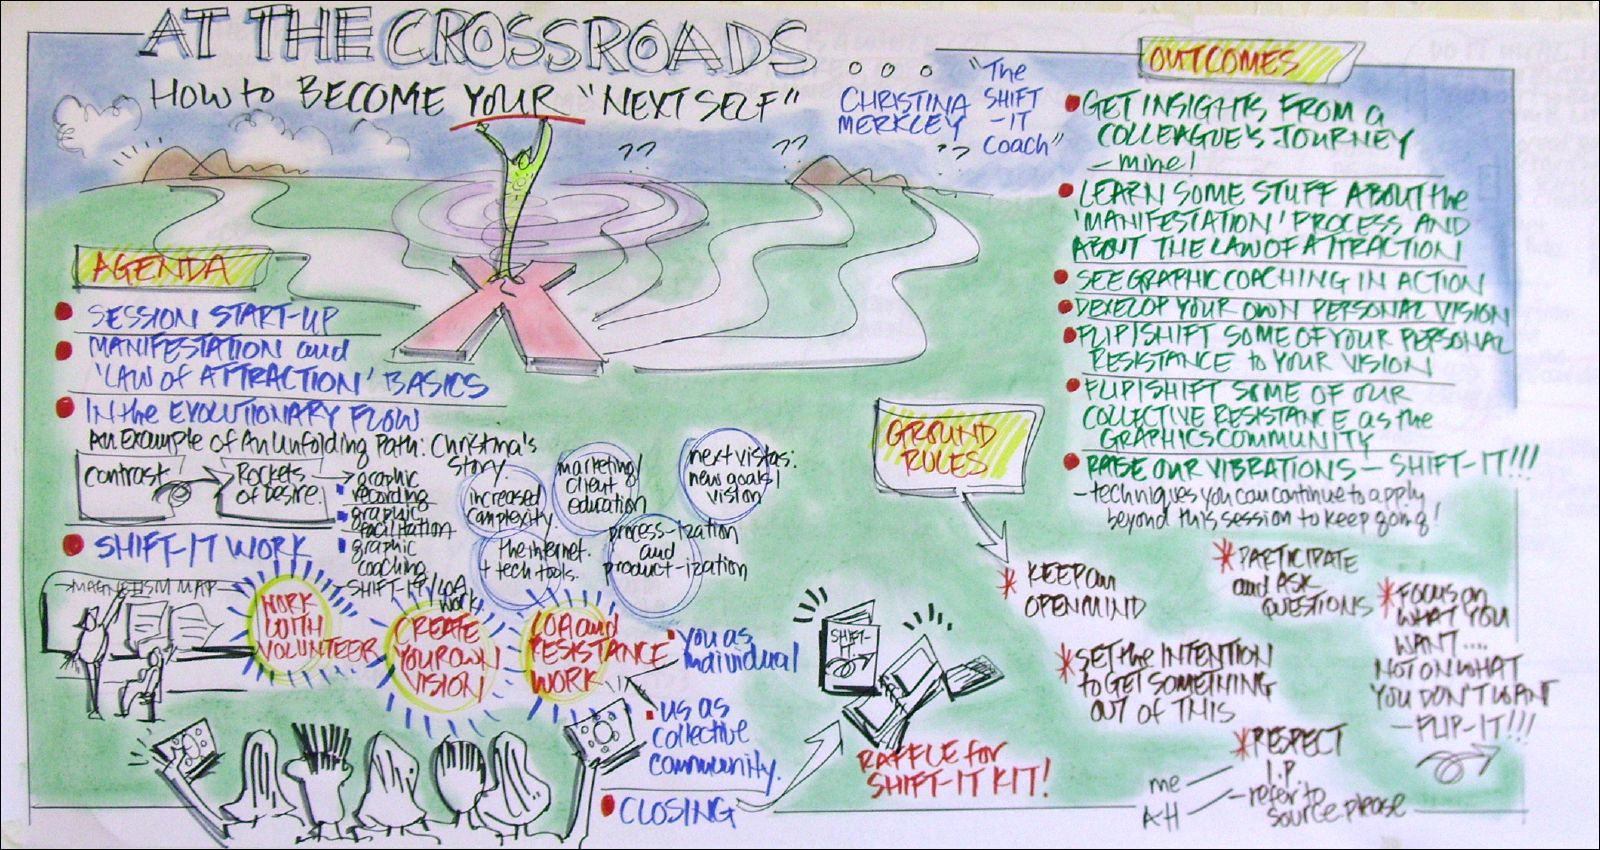 AT THE CROSSROADS...
HOW to BECOME YOUR "NEXT SELF"
CHRISTINA
MERKLEY
"The
SHIFT
-IT
Coach"
?? ?? ??
AGENDA
SESSION START-UP
MANIFESTATION and
'LAW of ATTRACTION' BASICS
IN the EVOLUTIONARY FLOW
An Example of An Unfolding Path: Christina's
Story.
contrast
Rockets
of desire.
graphic
recording
graphic
facilitation
graphic
coaching
SHIFT-IT/LOA
work
increased
complexity.
marketing/
client
education
next vistas:
new goals/
vision
the internet.
+ tech tools.
process-ization
and
product-ization
SHIFT-IT WORK
MAGNETISM MAP
WORK
WITH
VOLUNTEER
CREATE
YOUR OWN
VISION
LOA and
RESISTANCE
WORK
you as
individual
us as
collective
community.
CLOSING
SHIFT-
IT
RAFFLE for
SHIFT-IT KIT!
OUTCOMES
GET INSIGHTS FROM a
COLLEAGUE'S JOURNEY
- mine!
LEARN SOME STUFF ABOUT the
'MANIFESTATION' PROCESS AND
ABOUT THE LAW OF ATTRACTION
SEE GRAPHIC COACHING IN ACTION
DEVELOP YOUR OWN PERSONAL VISION
FLIP/SHIFT SOME OF YOUR PERSONAL
RESISTANCE to YOUR VISION
FLIP/SHIFT SOME OF OUR
COLLECTIVE RESISTANCE as the
GRAPHICS COMMUNITY
RAISE OUR VIBRATIONS - SHIFT-IT!!!
- techniques you can continue to apply
beyond this session to keep going!
GROUND
RULES
* KEEP an
OPEN MIND
* PARTICIPATE
and ASK
QUESTIONS
* FOCUS on
WHAT YOU
WANT....
NOT ON WHAT
YOU DON'T WANT
- FLIP-IT!!!
* SET the INTENTION
to GET SOMETHING
OUT OF THIS
* RESPECT
I.P.
me
A-H
- refer to
source please